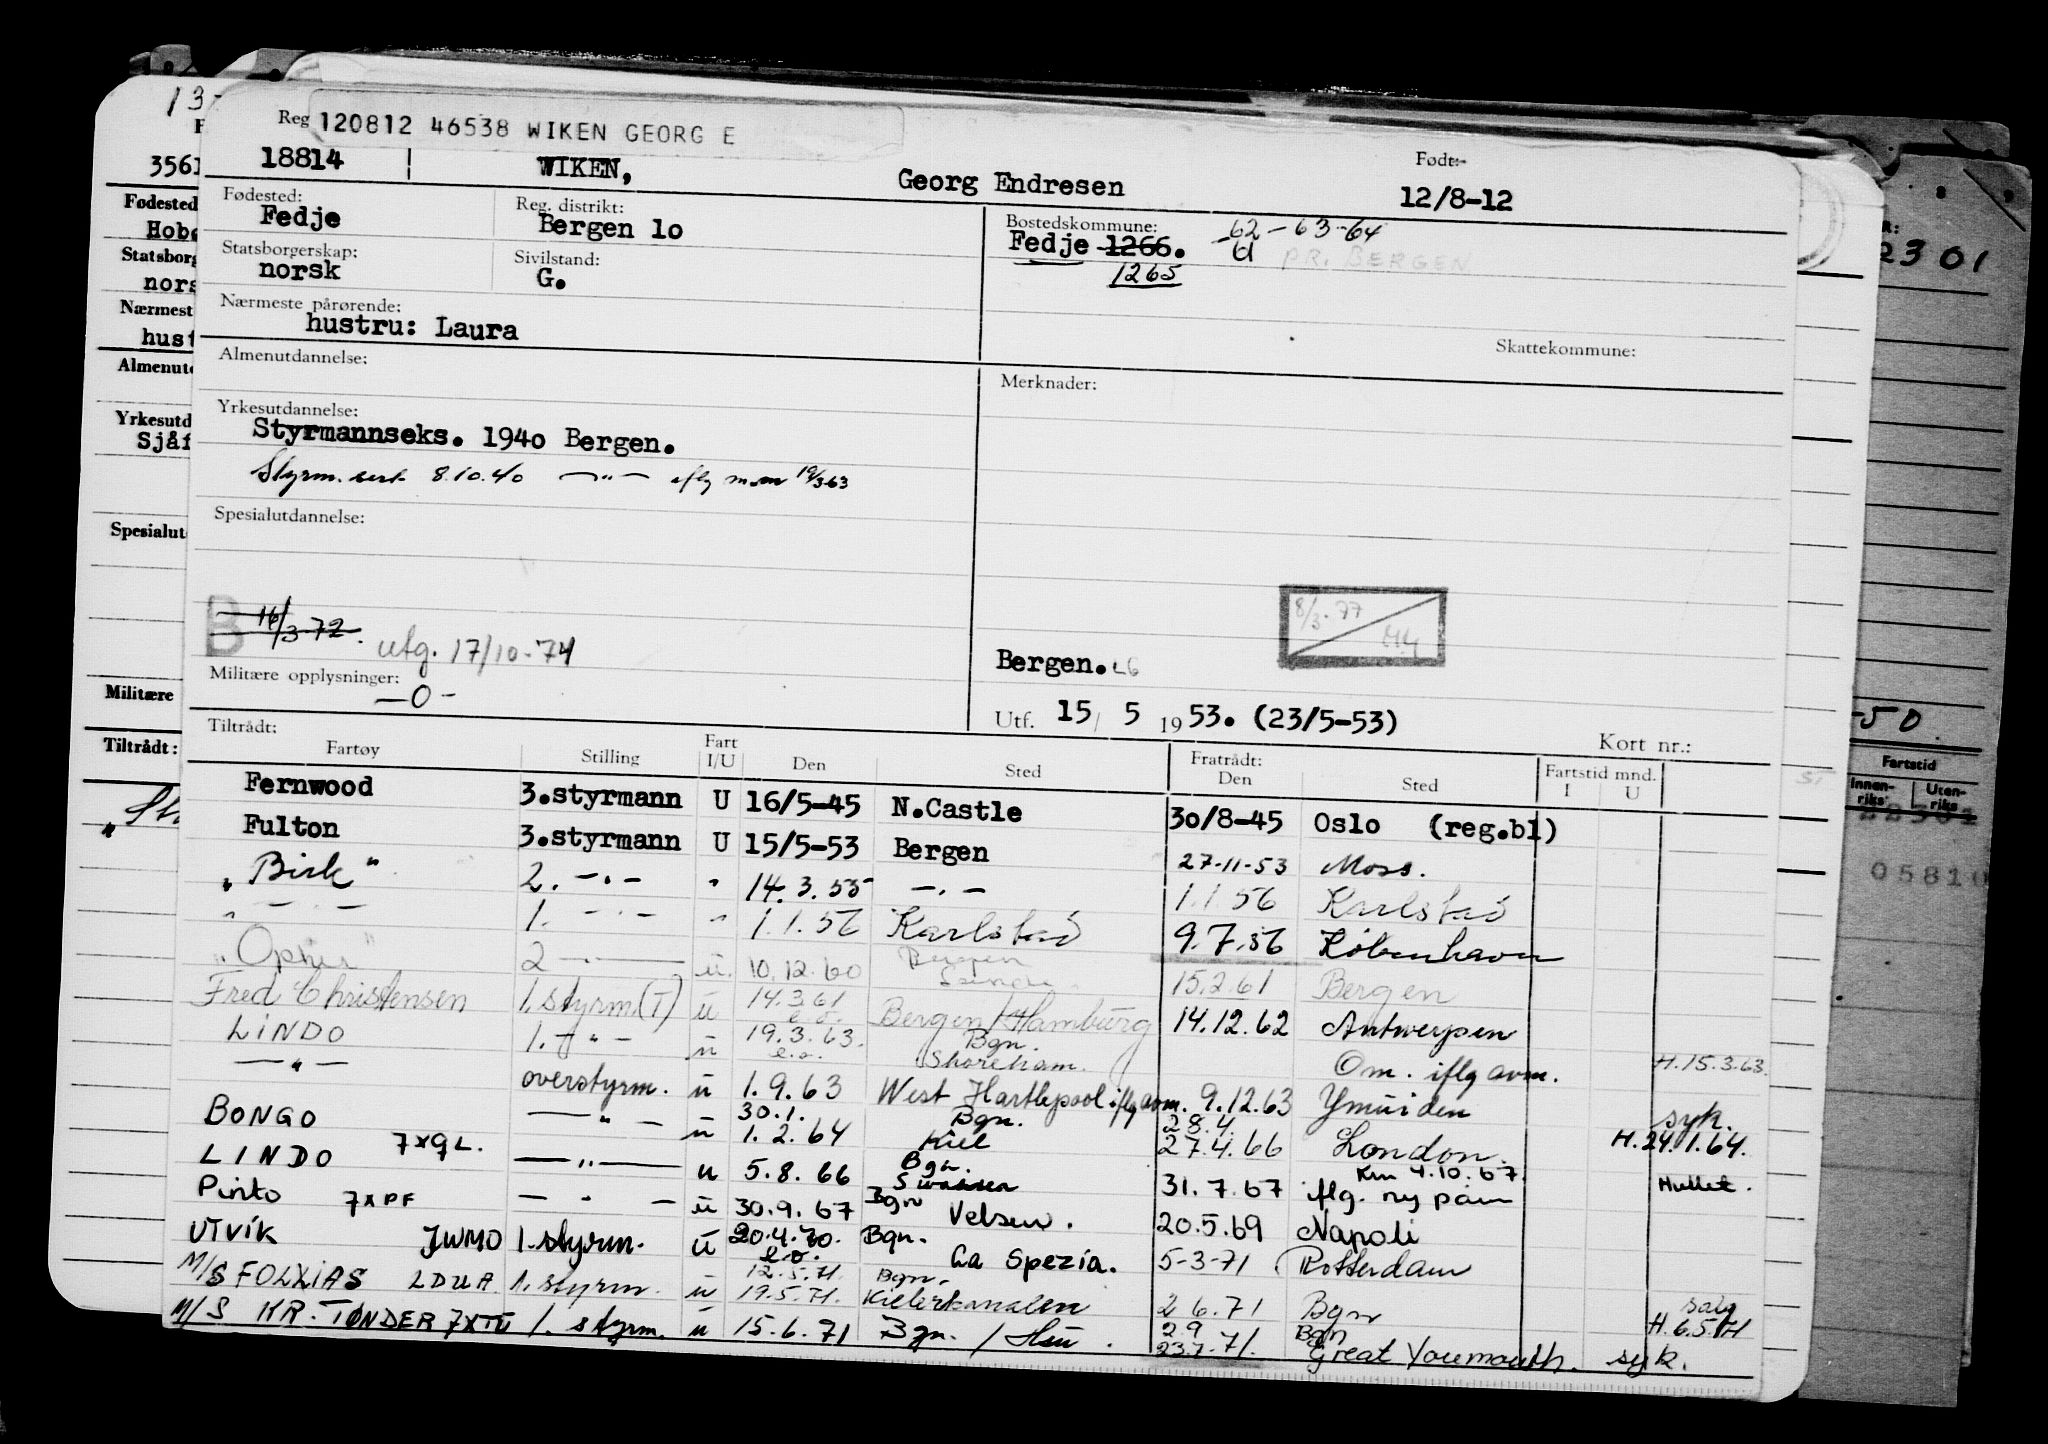 Reg 120812 46538 WIKEN GEORG E
18814 WIKEN, Georg Endresen
Født:-
12/8-12
Fødested: Reg. distrikt: Bostedskommune: 62-63-64
Fedje Bergen lo Fedje 1266. U PR. BERGEN
1265
Statsborgerskap: Sivilstand:
norsk G.
Nærmeste pårørende:
hustru: Laura
Skattekommune:
Almenutdannelse: Merknader:
Yrkesutdannelse:
Styrmannseks. 194o Bergen.
Styrm. sert 8.10.40 —"— iflg 19/3-63
Spesialutdannelse:
B 16/3-72. utg. 17/10-74
8/3-77
Bergen. LG
Militære opplysninger:
-0-
Utf. 15/ 5 1953. (23/5-53)
Tiltrådt: Fratrådt: Kort nr.:
Fartøy Stilling Fart I/U Den Sted Den Sted Fartstid mnd. I U
Fernwood 3.styrmann U 16/5-45 N.Castle 3o/8-45 Oslo (reg.bl)
Fulton 3.styrmann U 15/5-53 Bergen 27-11-53 Moss.
"Birk" 2. -"- " 14.3.55 -"- 1.1.56 Karlstad
" - " - 1. -"- " 1.1.56 Karlstad 9.7.56 København
2 — u. 10.12.60 Bergen 15.2.61 Bergen
Fred Christensen 1.styrm.(T) u 14.3.61 e.o. Bergen/Hamburg 14.12.62 Antwerpen
LINDO 1. -"- u 19.3.63. e.o. Bgn. Shoreham. Om. iflg avm. H.15.3.63.
—"— overstyrm. u 1.9.63 West Hartlepool iflg avm. 9.12.63 Ymuiden syk.
BONGO —"— u 30.1. 1.2.64 Bgn. Kiel 28.4. 27.4.66 London. H.24.1.64.
LINDO 7xgL. —"— u 5.8.66 Bgn. Swansea 31.7.67 iflg. ny påm Km 4.10.67.
Pinto 7xPF —"— u 30.9.67 Bgn Velsen. 20.5.69 Napoli
UTVIK JWMO 1.styrm. u 20.4.70. e.o. Bgn. La Spezia. 5-3-71 Rotterdam
M/S FOLXIAS LDUA 1.styrm. u 12.5.71. 19.5.71. Bgn. Kielerkanalen 2 6.71 Bgn salg H.6.5.71
M/S KR. TØNDER 7XTU 1.styrm. u 15.6.71 Bgn. / 29 23.7.71. Bgn Great Youmouth. syk.
13
3561
Fødested
Hobø
Statsborg
nors
Nærmest
hust
Almenut
Yrkesutd
Sjåf
Spesialut
Militære
Tiltrådt:
2301
-50
Fartstid
Innen-riks Uten-riks